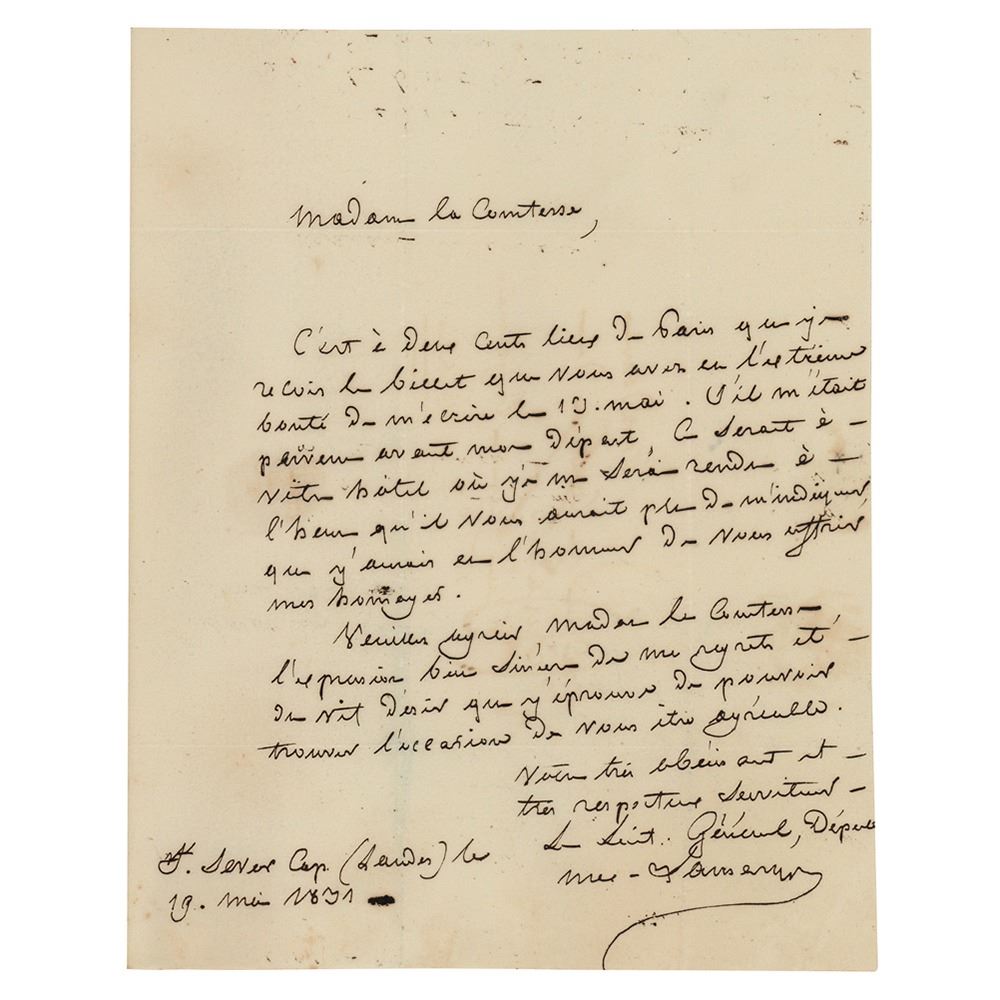 Madame la Comtesse,
C'est à deux cents lieux de Paris que je
reçois le billet que vous avez eu l'extrême
bonté de m'écrire le 13. mai. S'il m'était
parvenu avant mon départ, ce serait à
votre hôtel où je me serai rendu à
l'heure qu'il vous aurait plu de m'indiquer,
que j'aurais eu l'honneur de vous offrir
mes homages.
Veuillez agréer, Madame la Comtesse,
l'expression bien sincère de mes regrets et
du vif désir que j'éprouve de pouvoir
trouver l'occasion de vous être agréable.
Votre très obéissant et
très respectueux serviteur
Le Lieut. Général, Député
St. Sever Cap. (Landes) le
19. mai 1831